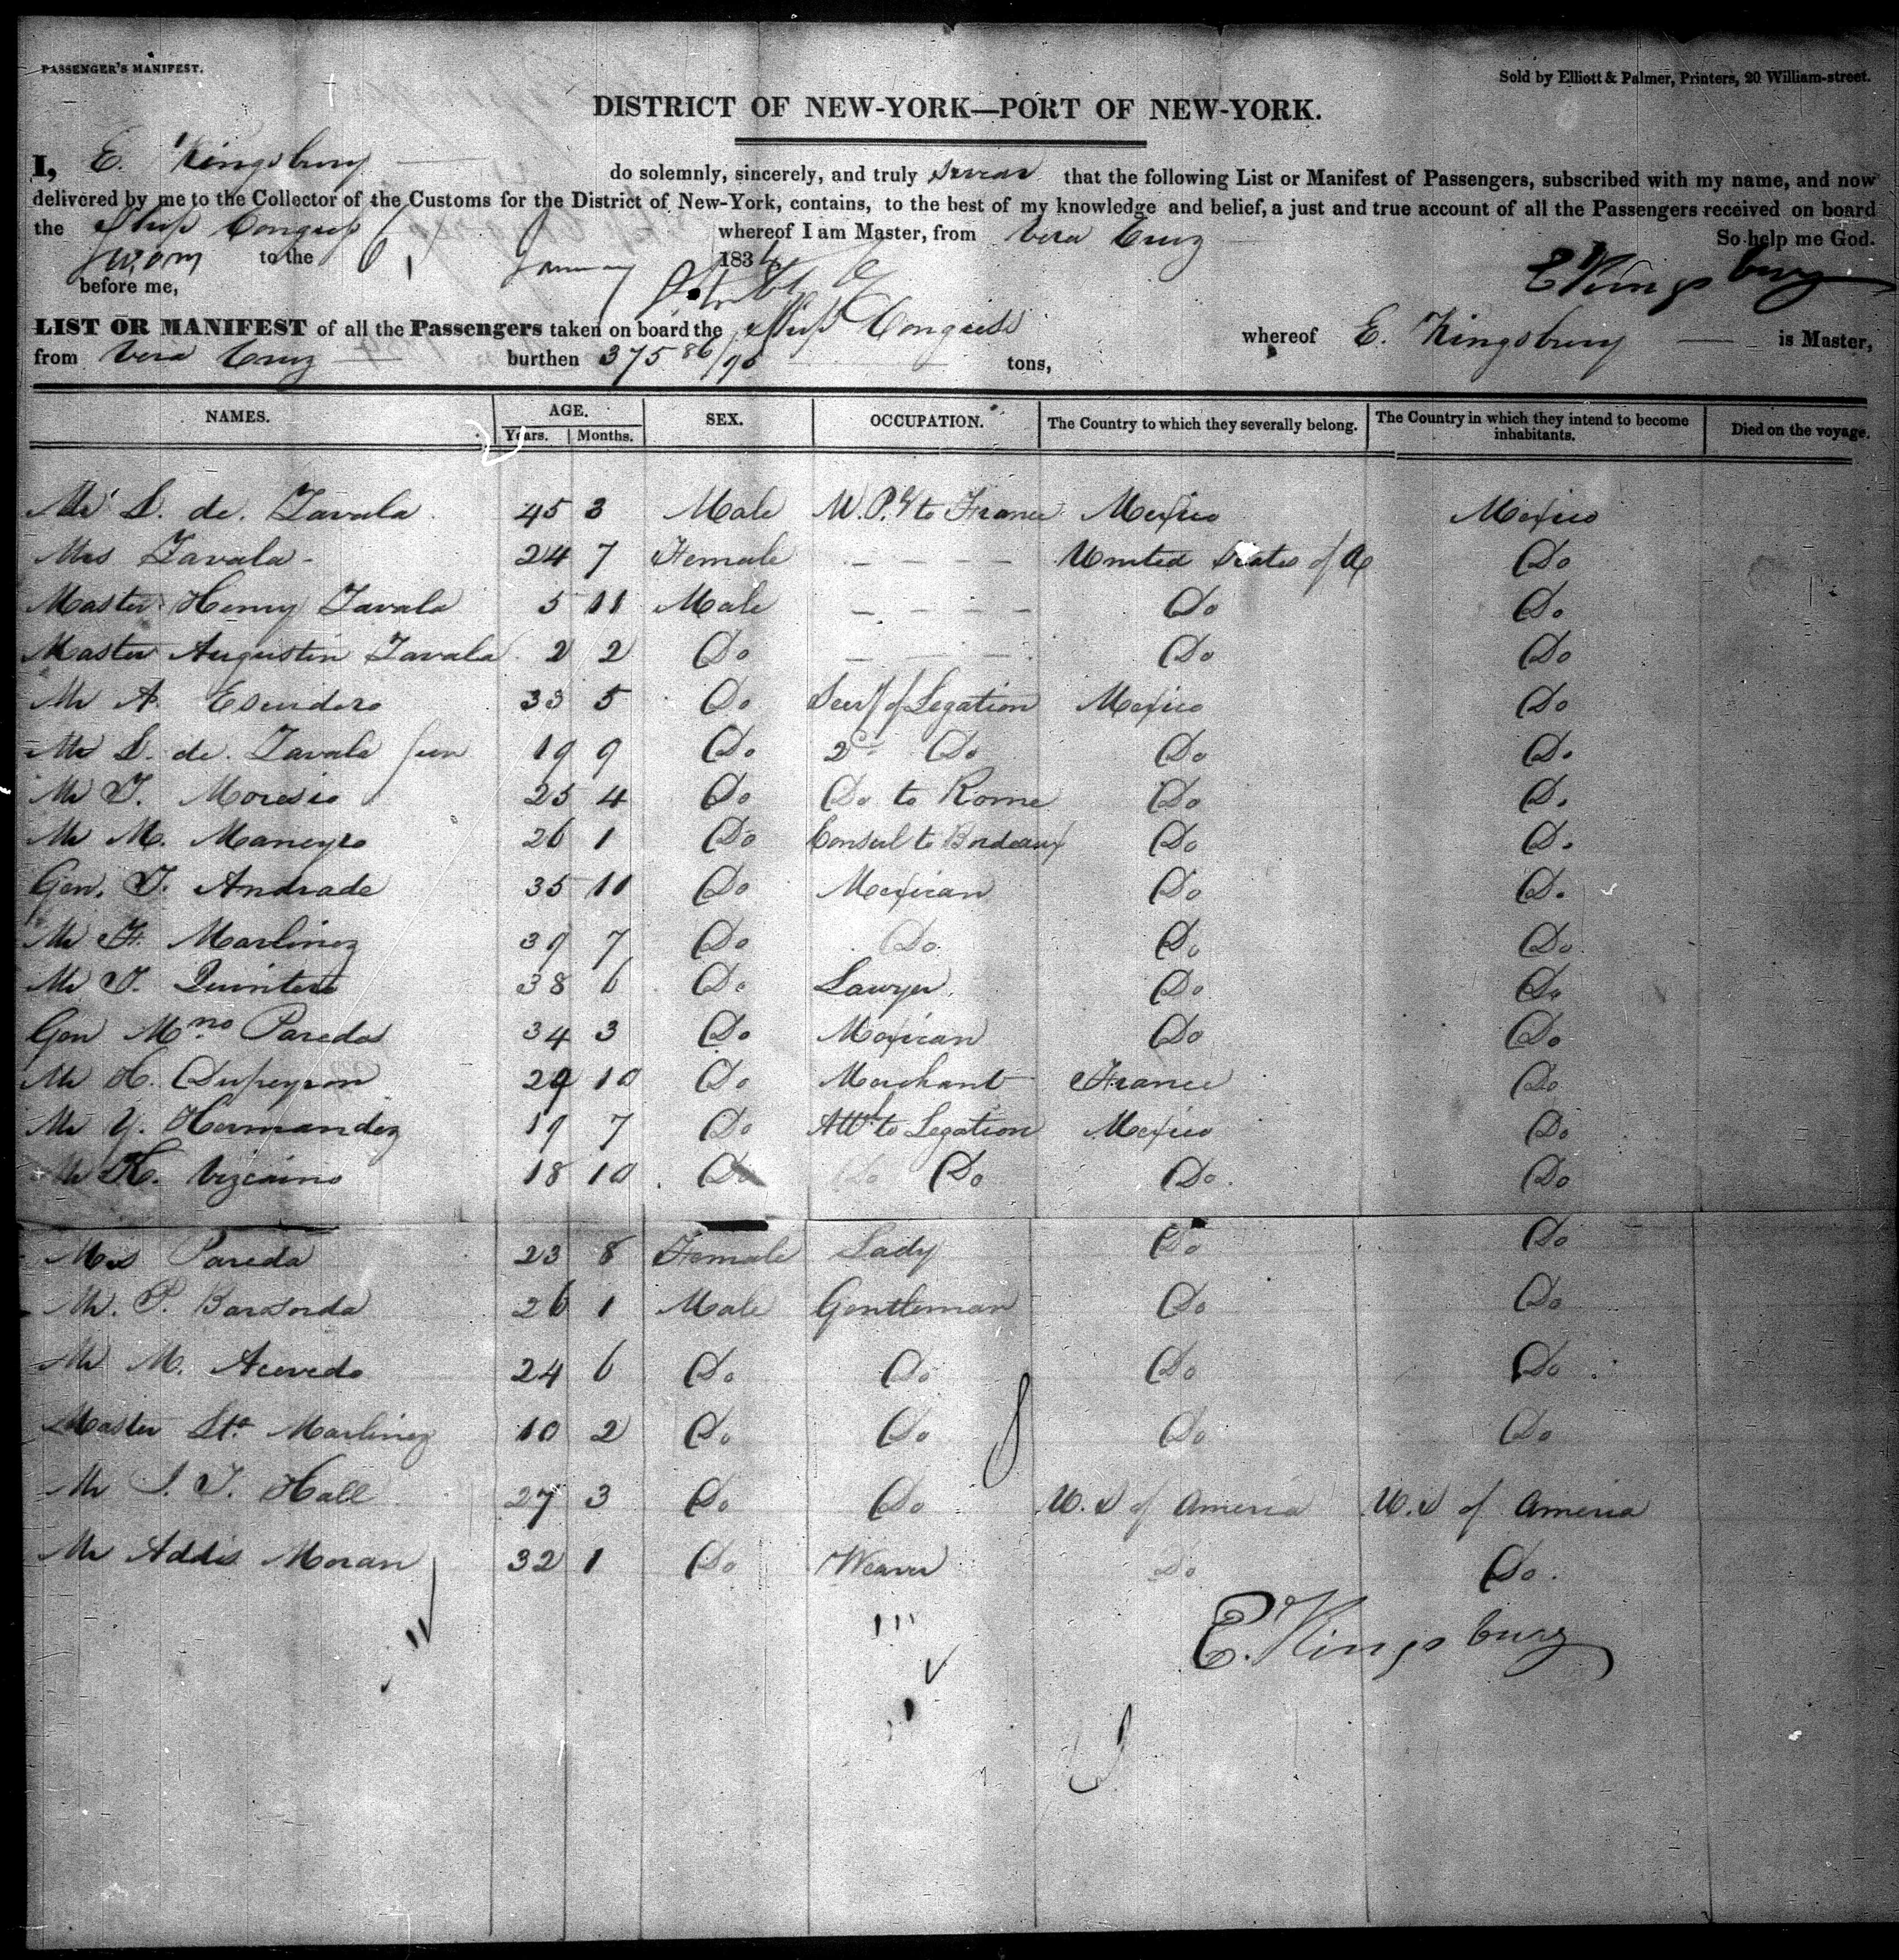 PASSENGER'S MANIFEST.
Sold by Elliott & Palmer, Printers, 20 William-street.
DISTRICT OF NEW-YORK—PORT OF NEW-YORK.
I, E. Kingsbury do solemnly, sincerely, and truly swear that the following List or Manifest of Passengers, subscribed with my name, and now
delivered by me to the Collector of the Customs for the District of New-York, contains, to the best of my knowledge and belief, a just and true account of all the Passengers received on board
the Ship Congress whereof I am Master, from Vera Cruz So help me God.
Sworn to the 6 January 1834 E Kingsbury
before me,
LIST OR MANIFEST of all the Passengers taken on board the Ship Congress whereof E. Kingsbury is Master,
from Vera Cruz burthen 375 86/95 tons,
NAMES. AGE. SEX. OCCUPATION. The Country to which they severally belong. The Country in which they intend to become inhabitants. Died on the voyage.
Years. Months.
Mr L. de. Zavala 45 3 Male M.P.y to France Mexico Mexico
Mrs Zavala 24 7 Female United States of A Do
Master Henry Zavala 5 11 Male Do Do
Master Augustin Zavala 2 2 Do Do Do
Mr A. Escudero 33 5 Do Secry of Legation Mexico Do
Mr L. de. Zavala jun 19 9 Do 2d Do Do Do
Mr T. 25 4 Do Do to Rome Do Do
Mr M. Maneyro 26 1 Do Consul to Bordeaux Do Do
Gen. J. Andrade 35 11 Do Mexican Do Do
Mr F. Martinez 39 7 Do Do Do Do
Mr J. Quintero 38 6 Do Lawyer Do Do
Gen Mno Paredes 34 3 Do Mexican Do Do
Mr H. Dupeyron 29 10 Do Merchant France Do
Mr Y. Hernandez 19 7 Do Attd to Legation Mexico Do
Mr R. Vizcaino 18 10 Do Do Do Do
Mrs Pareda 23 8 Female Lady Do Do
Mr. P. Barasorda 26 1 Male Gentleman Do Do
Mr M. Acevedo 24 6 Do Do Do Do
Master Sta. Martinez 10 2 Do Do Do Do
Mr Hall 27 3 Do Do U.S of America U.S of America
Mr Addis Moran 32 1 Do Weaver Do Do
E. Kingsbury